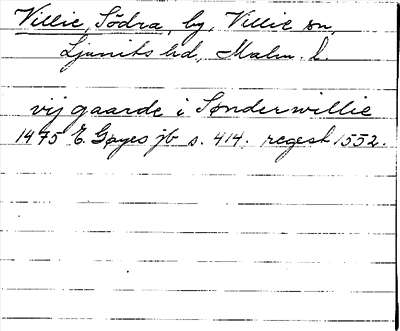 Villie, Södra, by, Villie sn,
Ljunits hd, Malm. l.
vij gaarde i Sønderwillie
1475 E. Gøyes jb s. 414. regest 1552.